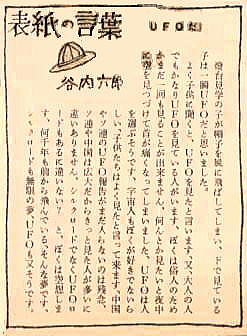 表紙の言葉
UFOだ
谷内六郎
燈台見学の子が帽子を風に飛ばしてしまい、下で見ている
子は一瞬UFOだと思いました。
よく子供に聞くと、UFOを見たと言います、又、大人の人
でもかなりUFOを見ている人がいます。ぼくは俗人のため
かまだ一回も見ることが出来ません、何んとか見たいと夜中
に空を見つづけて首が痛くなってしまいました。UFOは人
を選ぶそうです、宇宙人もぼくが好きでないら
しい、子供たちはよく見たと言って来ます。中国
やソ連のUFO報告がまだ入らないのは残念、
ソ連や中国は広大だからきっと見た人が多いに
違いありません、シルクロードでなくUFOロ
ードもあるに違いない？と、ぼくは空想しま
す、何千年も前から飛んでいる、そんな夢です、
シルクロードも無限の夢、UFOも又そうです。